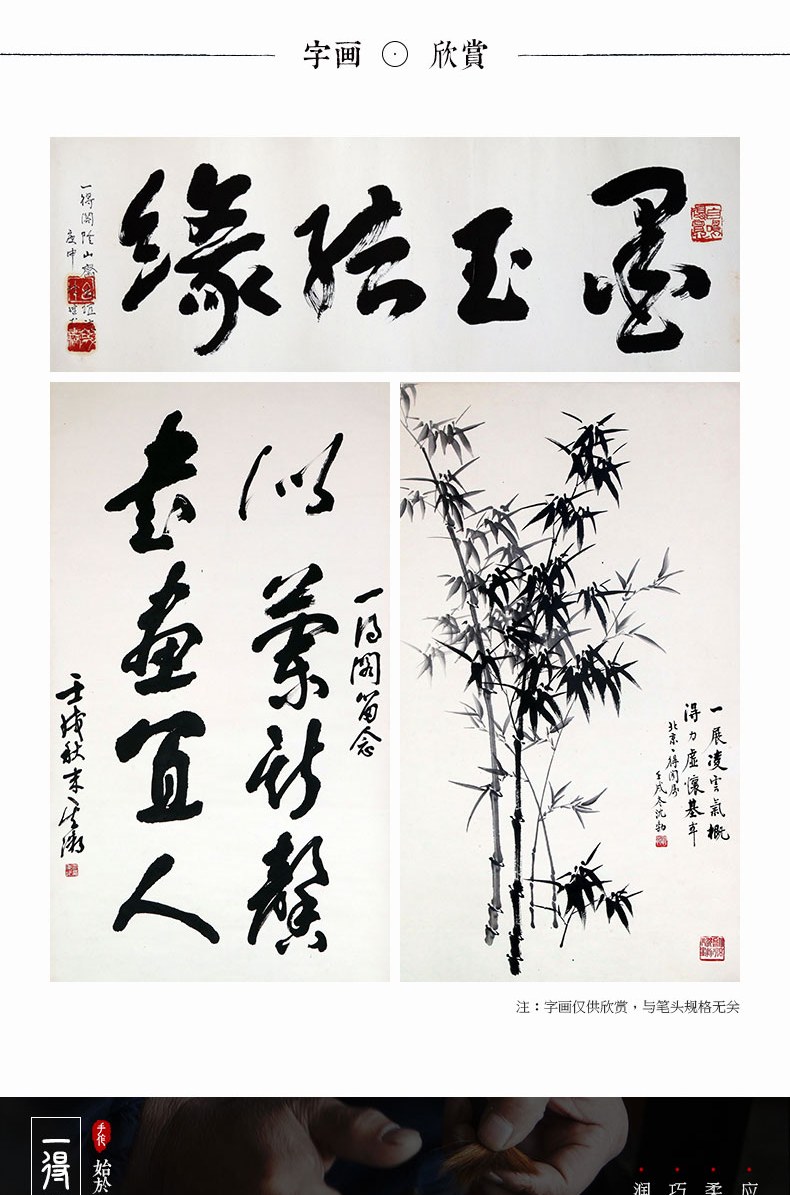 字画 欣賞
墨玉结缘
一得阁
庚申
似兰斯馨
书画宜人
一得阁留念
壬戌秋
一展凌雲氣概
得力虛懷基牢
北京一得阁属
壬戌冬沈勃
注：字画仅供欣赏，与笔头规格无关
一得
手作
始於
润 巧 柔 应